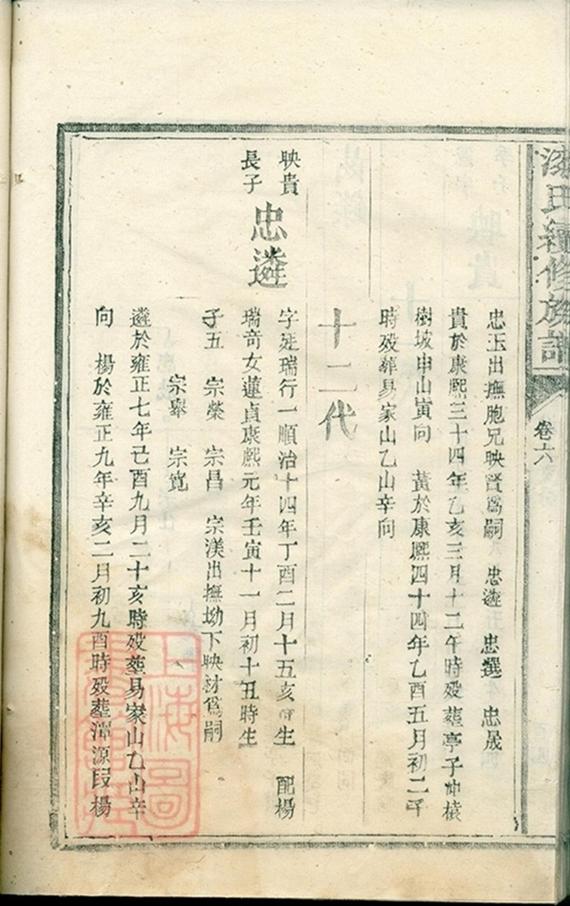 漆氏續修族譜
卷六
忠玉出撫胞兄映賢爲嗣 忠遴 忠選 忠晟
貴於康熙三十四年乙亥三月十二午時歿葬亭子
樹坡申山寅向 黃於康熙四十四年乙酉五月初二
時歿葬易家山乙山辛向
十二代
映貴長子 忠遴
字廷瑞行一順治十四年丁酉二月十五亥時生 配楊
瑞奇女蓮貞康熙元年壬寅十一月初十丑時生
子五 宗榮 宗昌 宗渼出撫坳下映材爲嗣
宗舉 宗寬
遴於雍正七年己酉九月二十亥時歿葬易家山乙山辛
向 楊於雍正九年辛亥二月初九酉時歿葬潭源段楊
上海圖